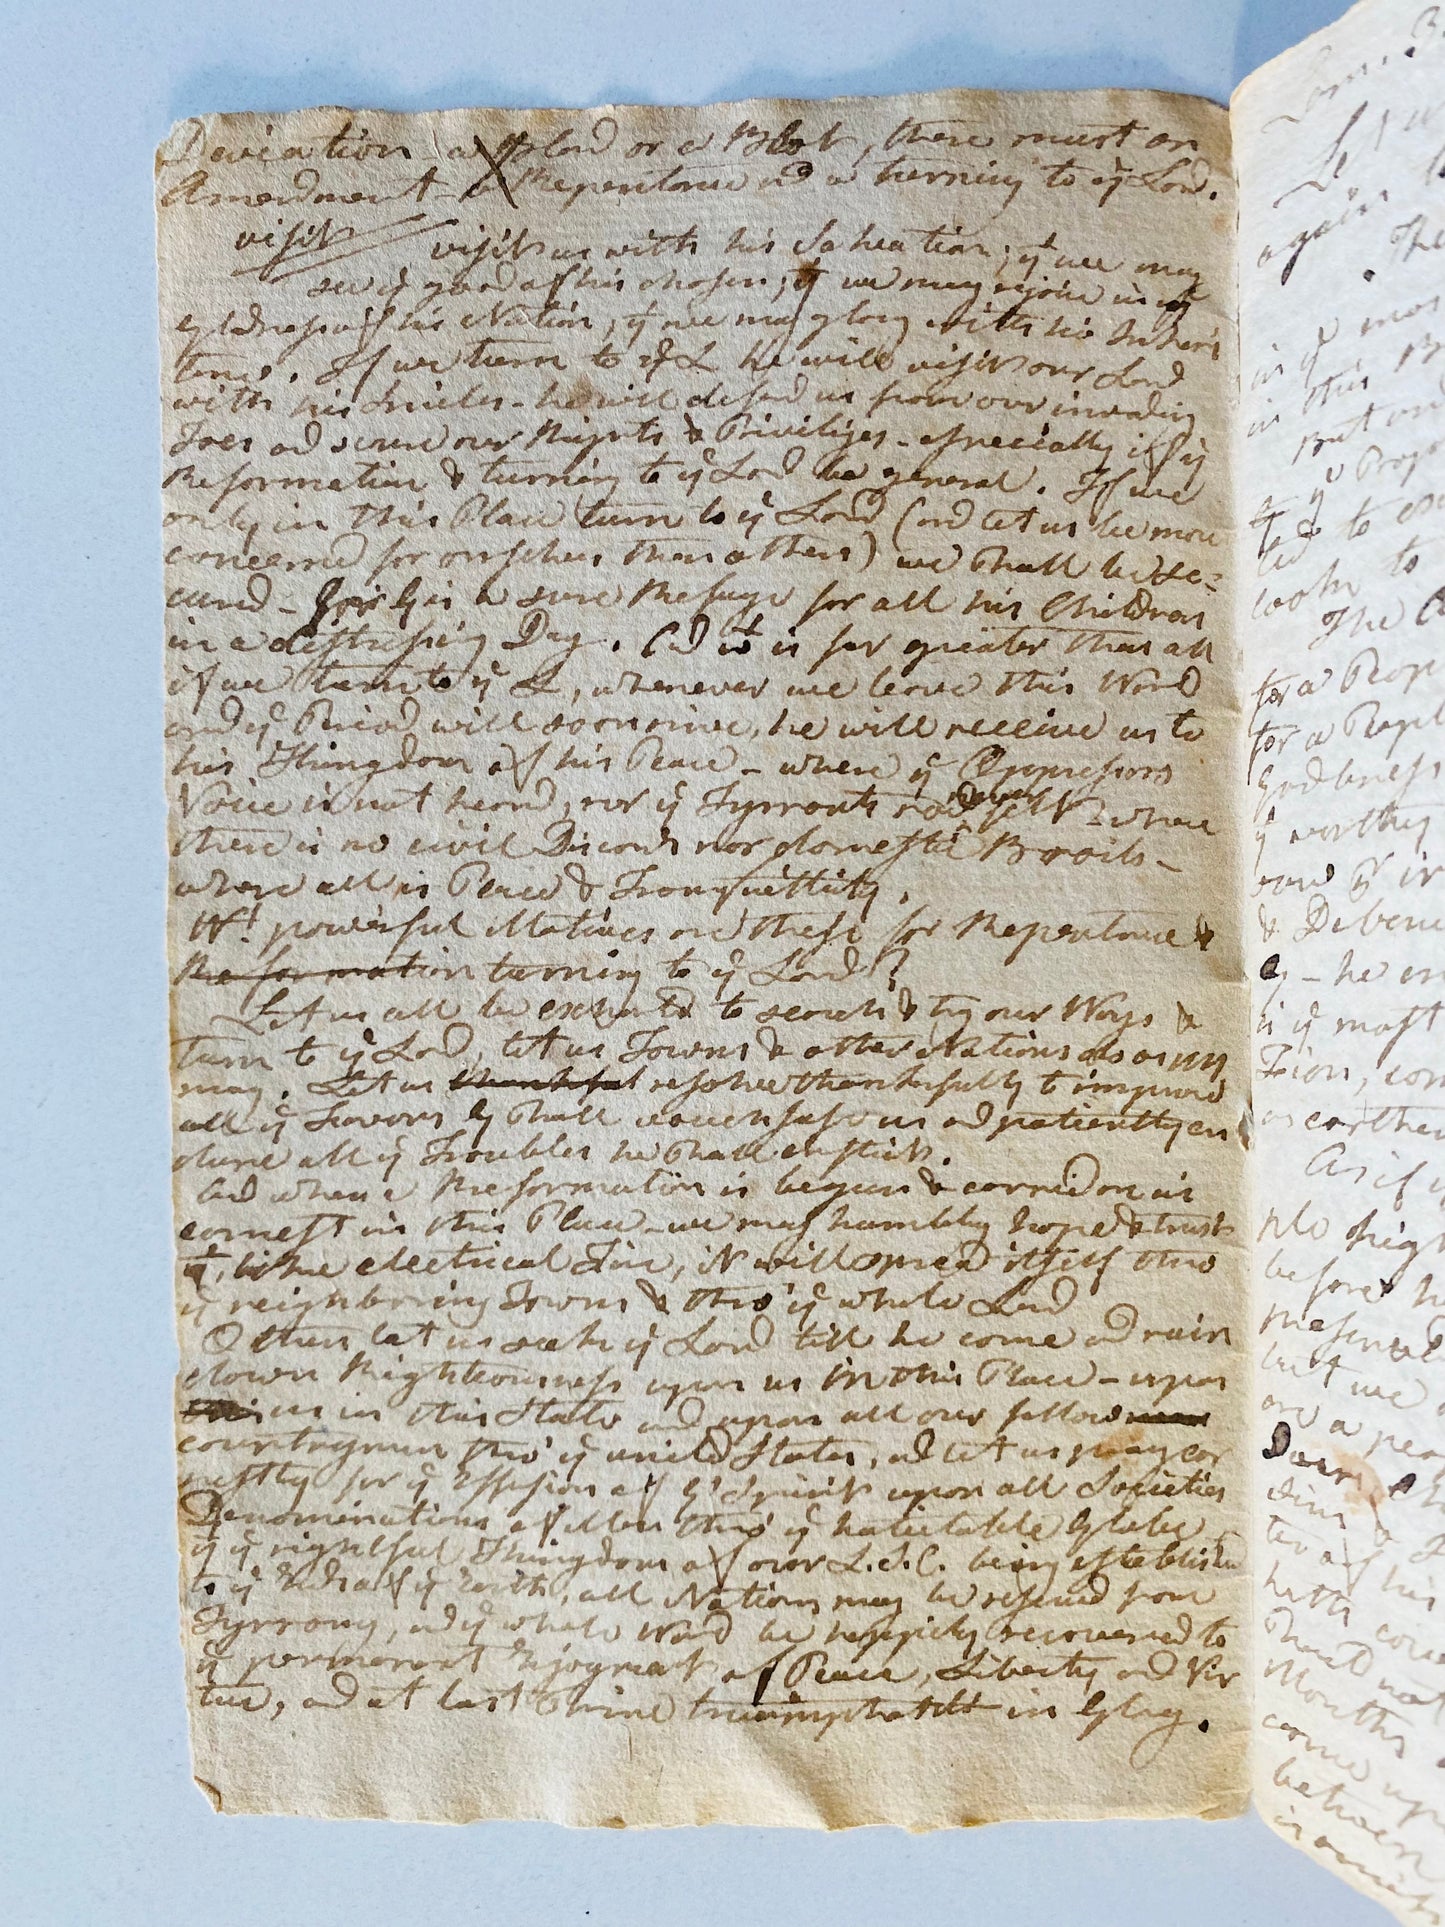 Deviation a or a Blot, there must an
Amendment - a Repentance ad a turning to yͤ Lord.
visit visit us with his Salvation; yͭ we may
see yͤ good of his chosen; yͭ we may rejoice in yͤ
gladness of his Nation, yͭ we may glory with his Inheri
tance. If we turn to yͤ L he will visit our Land
with his Smiles - he will defend us from our invading
Foes ad secure our Rights & Priviliges - especially if yͤ
Reformation & turning to yͤ Lord be general. If we
only in this Place turn to yͤ Lord (and let us be more
concerned for ourselves than others) we shall be se=
cured - for is a sure Refuge for all his Children
in a distressing Day. Ad wͭ is far greater than all
if we turn to yͤ L, whenever we leave this World
and yͤ Period will soon arive, he will receive us to
his Kingdom of his Peace - where yͤ Oppressors
Voice is not heard, nor yͤ Tyrrants rod never felt - where
there is no civil Discord nor domestic Broils -
where all is Peace & Tranquillity.
Wͭ powerful Motives are these for Repentance &
Reformation turning to yͤ Lord?
Let us all be exhorted to search & try our Ways &
turn to yͤ Lord, let us Towns & other Nations do as yͤ
may. Let us thankful resolve thankfully to improve
all yͤ Favours shall vouchsafe us ad patiently en
dure all yͤ Troubles he shall inflict.
And when a Reformation is begun & carried on in
earnest in this Place - we may humbly hope & trust
yͭ, like electrical Fire, it will spread itself thro'
yͤ neighboring Towns & thro' yͤ whole Land
O then let us seek yͤ Lord till he come ad rain
down Righteousness upon us in this Place - upon
us in this State and upon all our fellow
countrymen thro' yͤ united States, ad let us pray ear
nestly for yͤ Effusion of Spirit upon all Societies
Denominations of Men thro' yͤ habitable Globe
yͭ yͤ rightful Kingdom of our L.J.C. being established
to yͤ Ends of yͤ Earth, all Nations may be rescued from
Tyrrany, ad yͤ whole World be happily recovered to
yͤ permanent Enjoyment of Peace, Liberty and Vir
tue, and at last Shine triumphant in Glory.
again
The
in this
But
to
look to
The
for a Peop
for a
Godliness
yͤ worthy
& Di
yͤ most
As if
before
but we
are a
of his
hath
shall not
Months
come up
between